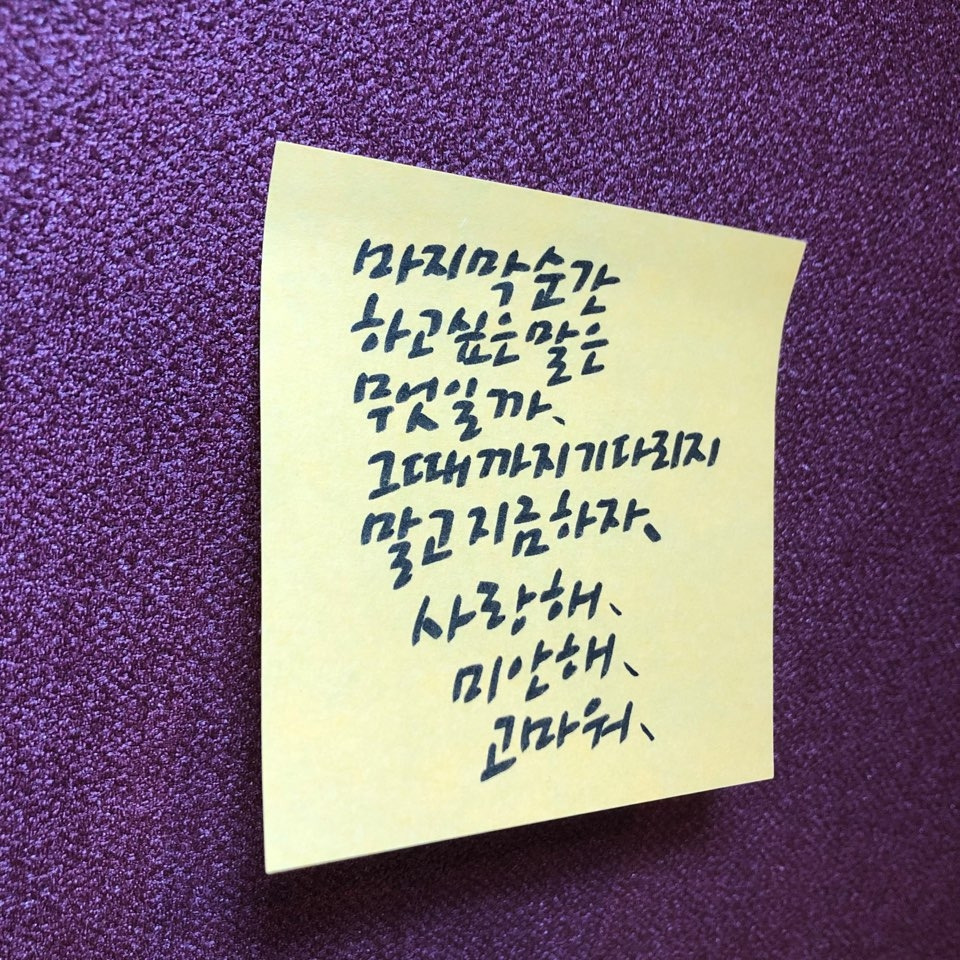 마지막순간
하고싶은말은
무엇일까、
그때까지기다리지
말고지금하자、
사랑해、
미안해、
고마워、